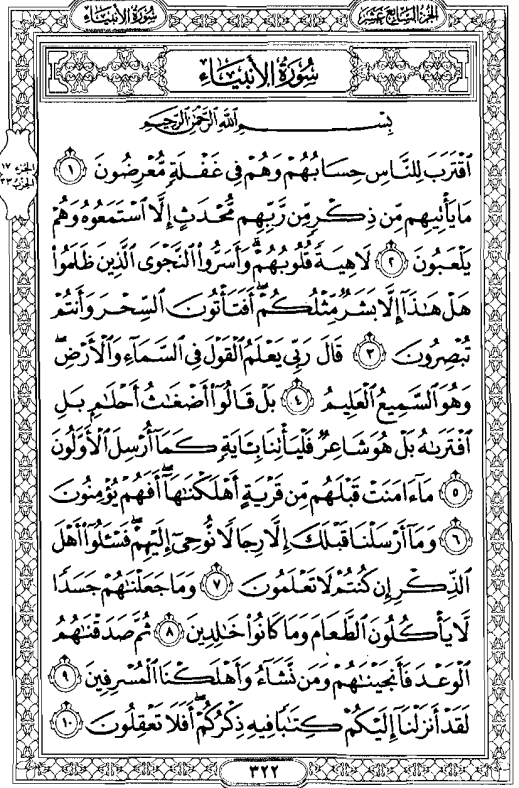 الجزء السابع عشر
سورة الأنبياء
سُورَةُ الأَنبِيَاءِ
بِسْمِ ٱللَّهِ ٱلرَّحْمَٰنِ ٱلرَّحِيمِ
الجزء ١٧
الحزب ٣٣
ٱقْتَرَبَ لِلنَّاسِ حِسَابُهُمْ وَهُمْ فِى غَفْلَةٍ مُّعْرِضُونَ ١
مَا يَأْتِيهِم مِّن ذِكْرٍ مِّن رَّبِّهِم مُّحْدَثٍ إِلَّا ٱسْتَمَعُوهُ وَهُمْ
يَلْعَبُونَ ٢ لَاهِيَةً قُلُوبُهُمْ ۗ وَأَسَرُّوا۟ ٱلنَّجْوَى ٱلَّذِينَ ظَلَمُوا۟
هَلْ هَٰذَآ إِلَّا بَشَرٌ مِّثْلُكُمْ ۖ أَفَتَأْتُونَ ٱلسِّحْرَ وَأَنتُمْ
تُبْصِرُونَ ٣ قَالَ رَبِّى يَعْلَمُ ٱلْقَوْلَ فِى ٱلسَّمَآءِ وَٱلْأَرْضِ ۖ
وَهُوَ ٱلسَّمِيعُ ٱلْعَلِيمُ ٤ بَلْ قَالُوٓا۟ أَضْغَٰثُ أَحْلَٰمٍۭ بَلِ
ٱفْتَرَىٰهُ بَلْ هُوَ شَاعِرٌ فَلْيَأْتِنَا بِـَٔايَةٍ كَمَآ أُرْسِلَ ٱلْأَوَّلُونَ
٥ مَآ ءَامَنَتْ قَبْلَهُم مِّن قَرْيَةٍ أَهْلَكْنَٰهَآ ۖ أَفَهُمْ يُؤْمِنُونَ
٦ وَمَآ أَرْسَلْنَا قَبْلَكَ إِلَّا رِجَالًا نُّوحِىٓ إِلَيْهِمْ ۖ فَسْـَٔلُوٓا۟ أَهْلَ
ٱلذِّكْرِ إِن كُنتُمْ لَا تَعْلَمُونَ ٧ وَمَا جَعَلْنَٰهُمْ جَسَدًا
لَّا يَأْكُلُونَ ٱلطَّعَامَ وَمَا كَانُوا۟ خَٰلِدِينَ ٨ ثُمَّ صَدَقْنَٰهُمُ
ٱلْوَعْدَ فَأَنجَيْنَٰهُمْ وَمَن نَّشَآءُ وَأَهْلَكْنَا ٱلْمُسْرِفِينَ ٩
لَقَدْ أَنزَلْنَآ إِلَيْكُمْ كِتَٰبًا فِيهِ ذِكْرُكُمْ ۖ أَفَلَا تَعْقِلُونَ ١٠
٣٢٢